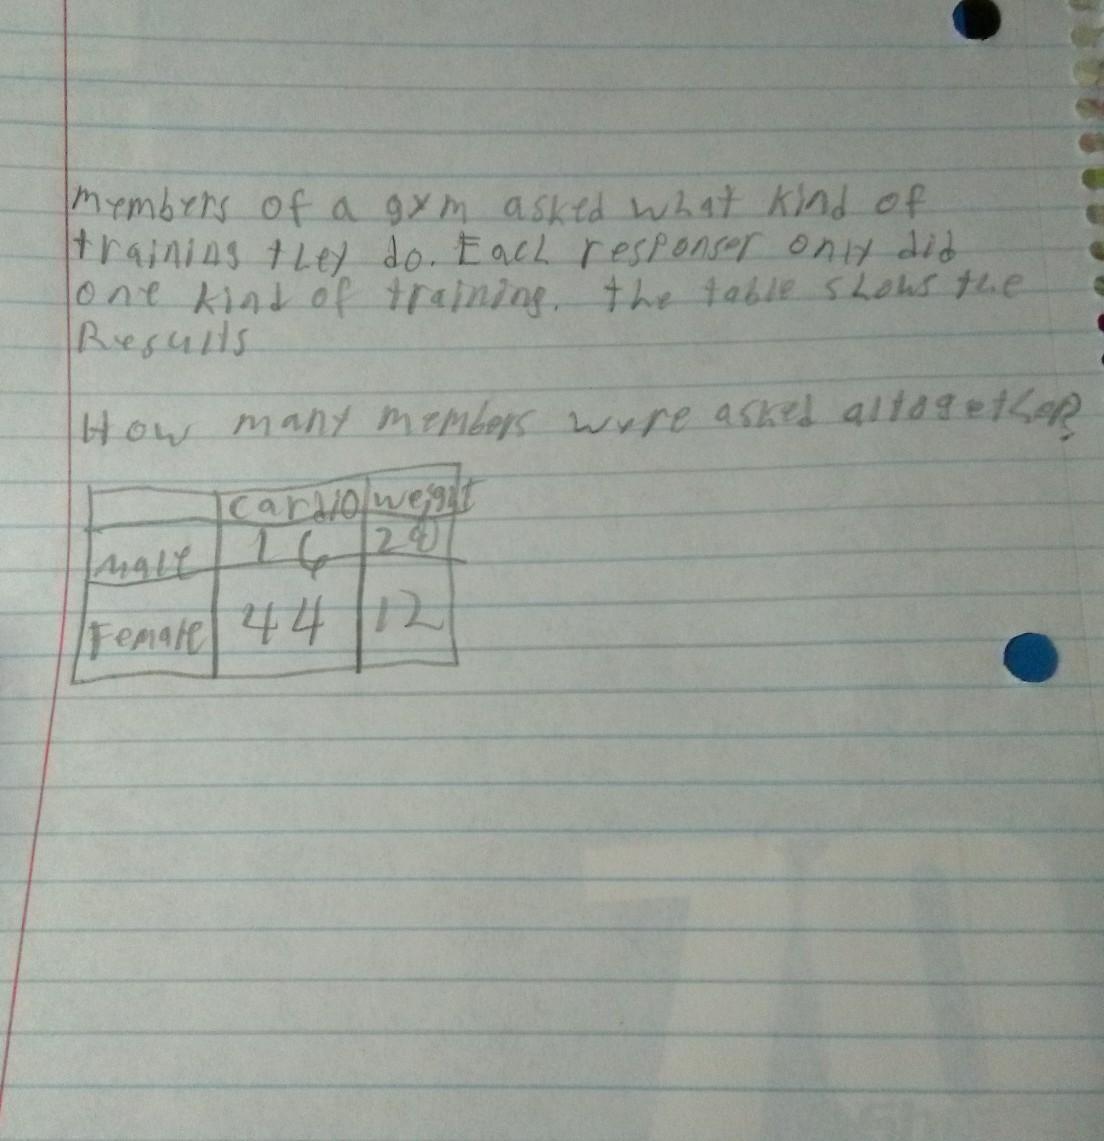 members of a gym asked what kind of
training they do. Each responser only did
one kind of training. the table shows the
Results
How many members were asked altogether?
cardio weight
Male 16 28
Female 44 12